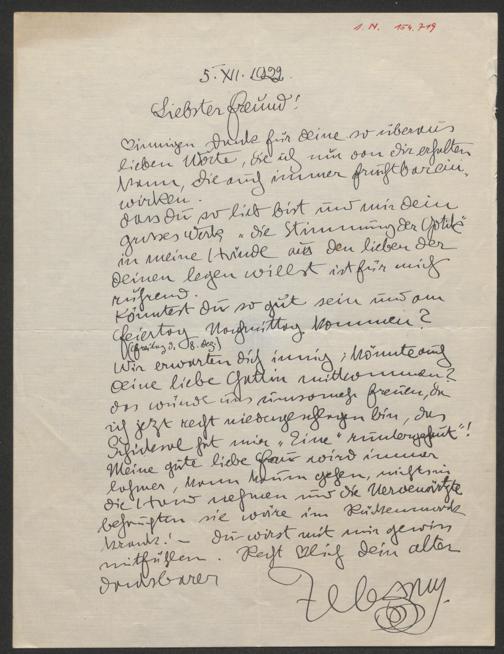 I. N. 154.719
5. XII. 1922.
Liebster Freund!
Innigen Dank für deine so überaus
lieben Worte, die ich nur von dir erhalten
kann, die auch immer fruchtbar ein-
wirken.
dass du so lieb bist und mir dein
grosses Werk „die Stimmung der Gotik"
in meine Hände aus den lieben der
deinen legen willst ist für mich
rührend.
Könntest du so gut sein und am
Feiertag Nachmittag kommen?
(Freitag d. 8. Dez.)
Wir erwarten dich innig; könnte auch
deine liebe Gattin mitkommen?
das würde uns umsomehr freuen, da
ich jetzt recht niedergeschlagen bin, das
Schicksal hat mir „Eine"
Meine gute liebe Frau wird immer
lahmer, kann kaum gehen, nichts in
die Hand nehmen und die Nervenärzte
behaupten sie wäre im Rückenmark
krank! – du wirst mit mir gewiss
mitfühlen. Recht ♡lich dein alter
dankbarer
Zelezny.